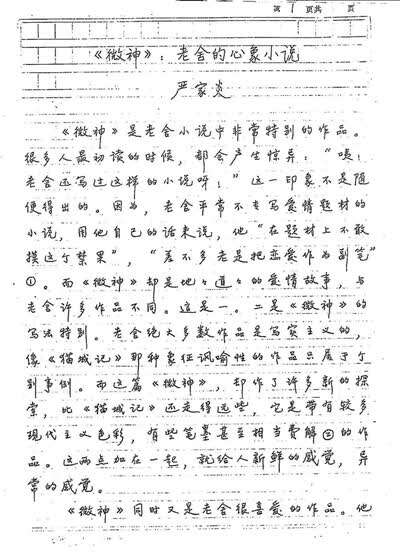 第 1 页共 页
《微神》：老舍的心象小说
严家炎
《微神》是老舍小说中非常特别的作品。
很多人最初读的时候，都会产生惊异："咦！
老舍还写过这样的小说呀！"这一印象不是随
便得出的。因为，老舍平常不专写爱情题材的
小说，用他自己的话来说，他"在题材上不敢
摸这个禁果"，"差不多老是把恋爱作为副笔"
①。而《微神》却是地々道々的爱情故事，与
老舍许多作品不同。这是一。二是《微神》的
写法特别。老舍绝大多数作品是写实主义的，
像《猫城记》那种象征讽喻性的作品只属于个
别事例。而这篇《微神》，却作了许多新的探
索，比《猫城记》还走得远些，它是带有较多
现代主义色彩，有些笔墨甚至相当费解②的作
品。这两点加在一起，就给人新鲜的感觉，异
常的感觉。
《微神》同时又是老舍很喜爱的作品。他